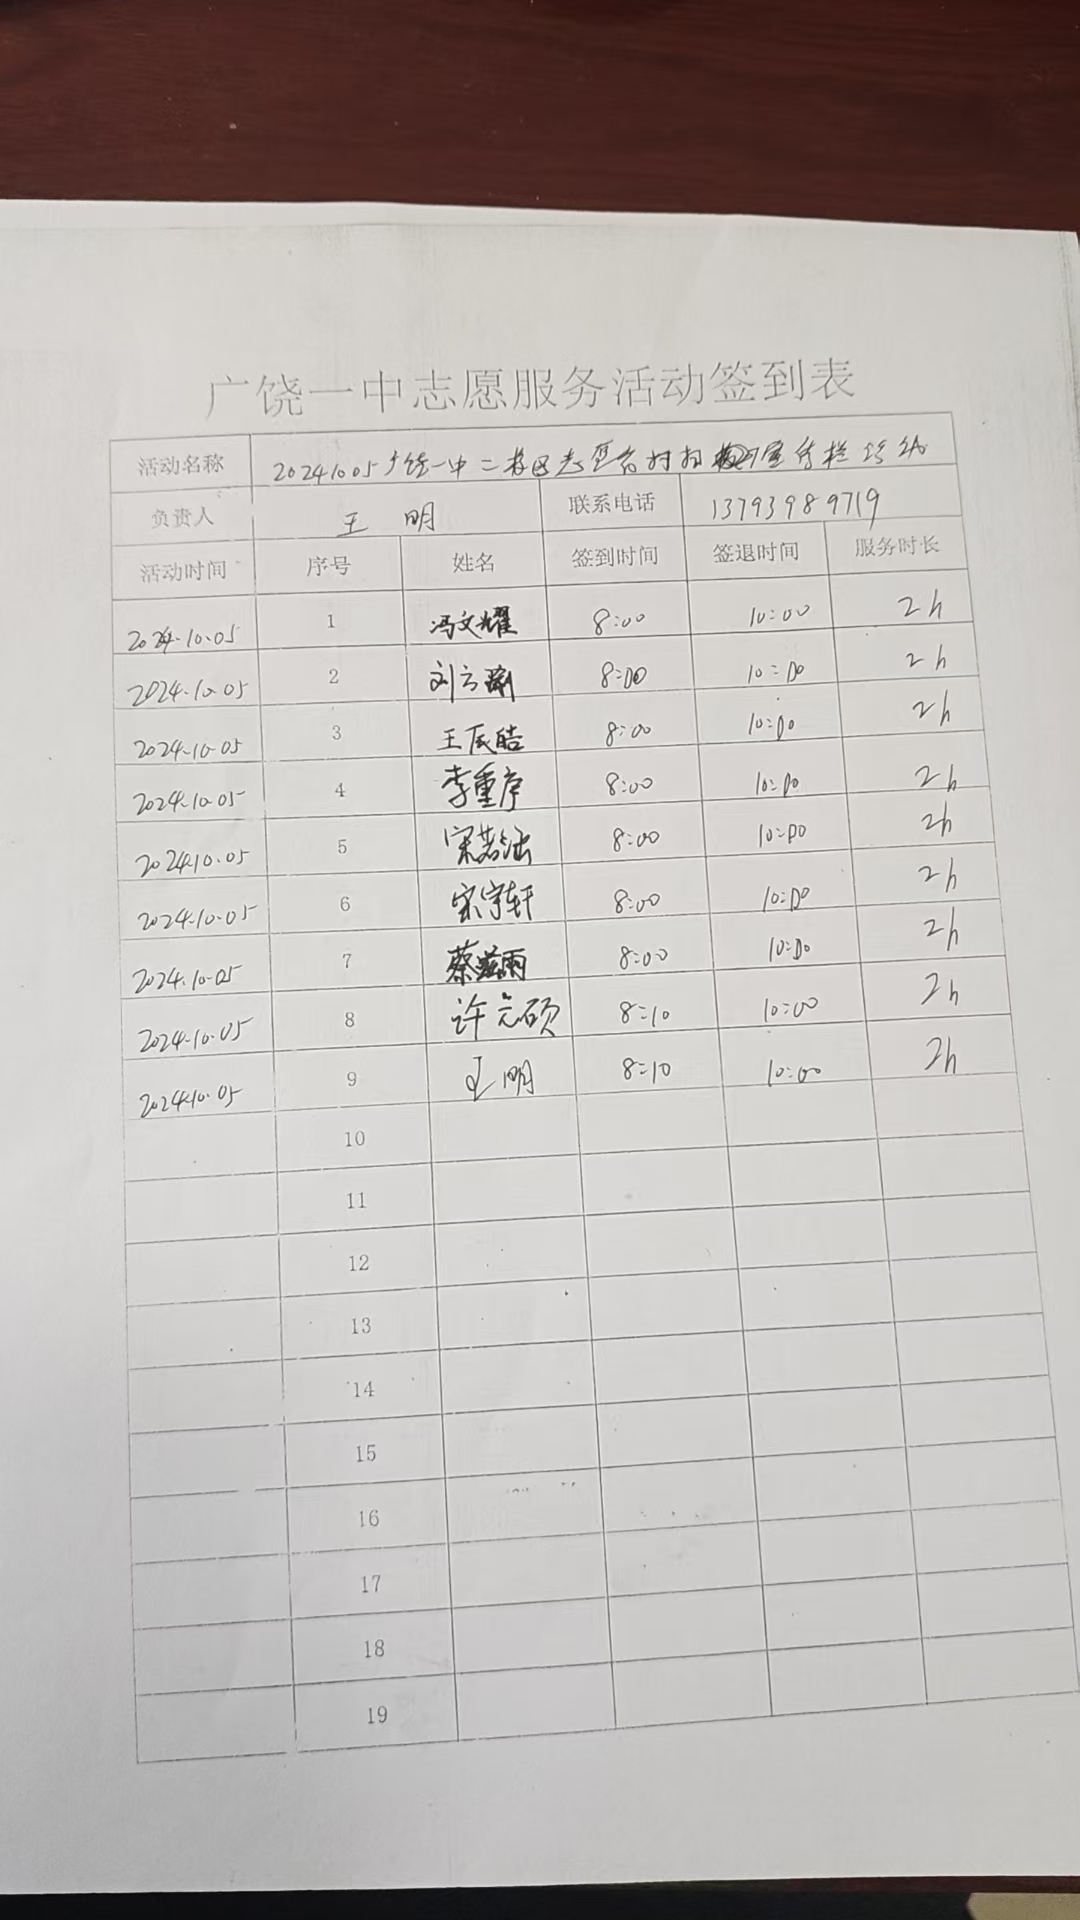 广饶一中志愿服务活动签到表
活动名称 20241005广饶一中二校区志愿者
负责人 王明 联系电话 13793989719
活动时间 序号 姓名 签到时间 签退时间 服务时长
2024.10.05 1 冯文耀 8:00 10:00 2h
2024.10.05 2 刘 8:00 10:00 2h
2024.10.05 3 王辰皓 8:00 10:00 2h
2024.10.05 4 李重序 8:00 10:00 2h
2024.10.05 5 宋若 8:00 10:00 2h
2024.10.05 6 宋宇轩 8:00 10:00 2h
2024.10.05 7 蔡滋雨 8:00 10:00 2h
2024.10.05 8 许元硕 8:10 10:00 2h
2024.10.05 9 王明 8:10 10:00 2h
10
11
12
13
14
15
16
17
18
19